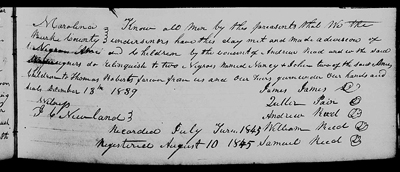 N Carolina } Know all men by these presents that We the
Burke County } undersigners have this day met and made a division of
Negroes and Children by the consent of Andrew Reed and we the said
undersigners do relinquish to two Negroes named Nancy & John two of the said
children to Thomas Roberts farever from us and our heirs given under our hands and
seals December 13th 1839 James James
Witness
Andrew Reed
J C Newland } William Reed
Recorded July Turm 1845
Registered August 10 1845 Samuel Reed